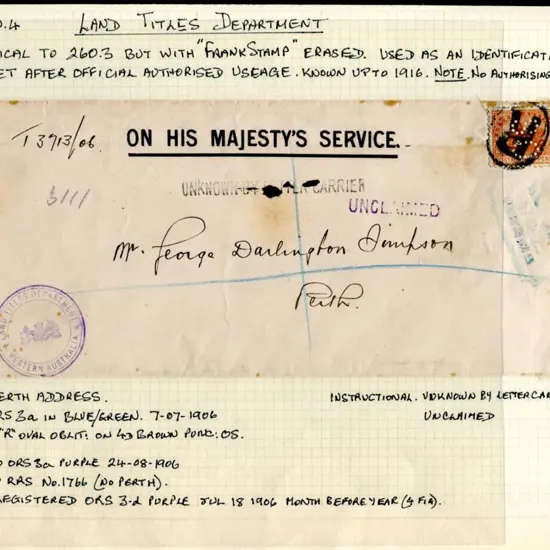 0.4 LAND TITLES DEPARTMENT
ICAL TO 260.3 BUT WITH "FRANKSTAMP" ERASED. USED AS AN IDENTIFICATI
ET AFTER OFFICIAL AUTHORISED USEAGE. KNOWN UPTO 1916. NOTE. NO AUTHORISING
T 3913/06
ON HIS MAJESTY'S SERVICE.
3111
UNKNOWN BY LETTER CARRIER
UNCLAIMED
Mr. George Darlington Simpson
Perth.
LAND TITLES DEPARTMENT
WESTERN AUSTRALIA
ERTH ADDRESS.
RS 3a IN BLUE/GREEN. 7-07-1906
"R" OVAL OBLIT: ON 4D BROWN PUNC: OS.
ORS 3a PURPLE 24-08-1906
RRS No. 1766 (NO PERTH).
REGISTERED ORS 3-d PURPLE JUL 18 1906 MONTH BEFORE YEAR (4 FIG).
INSTRUCTIONAL. UNKNOWN BY LETTERCAR
UNCLAIMED